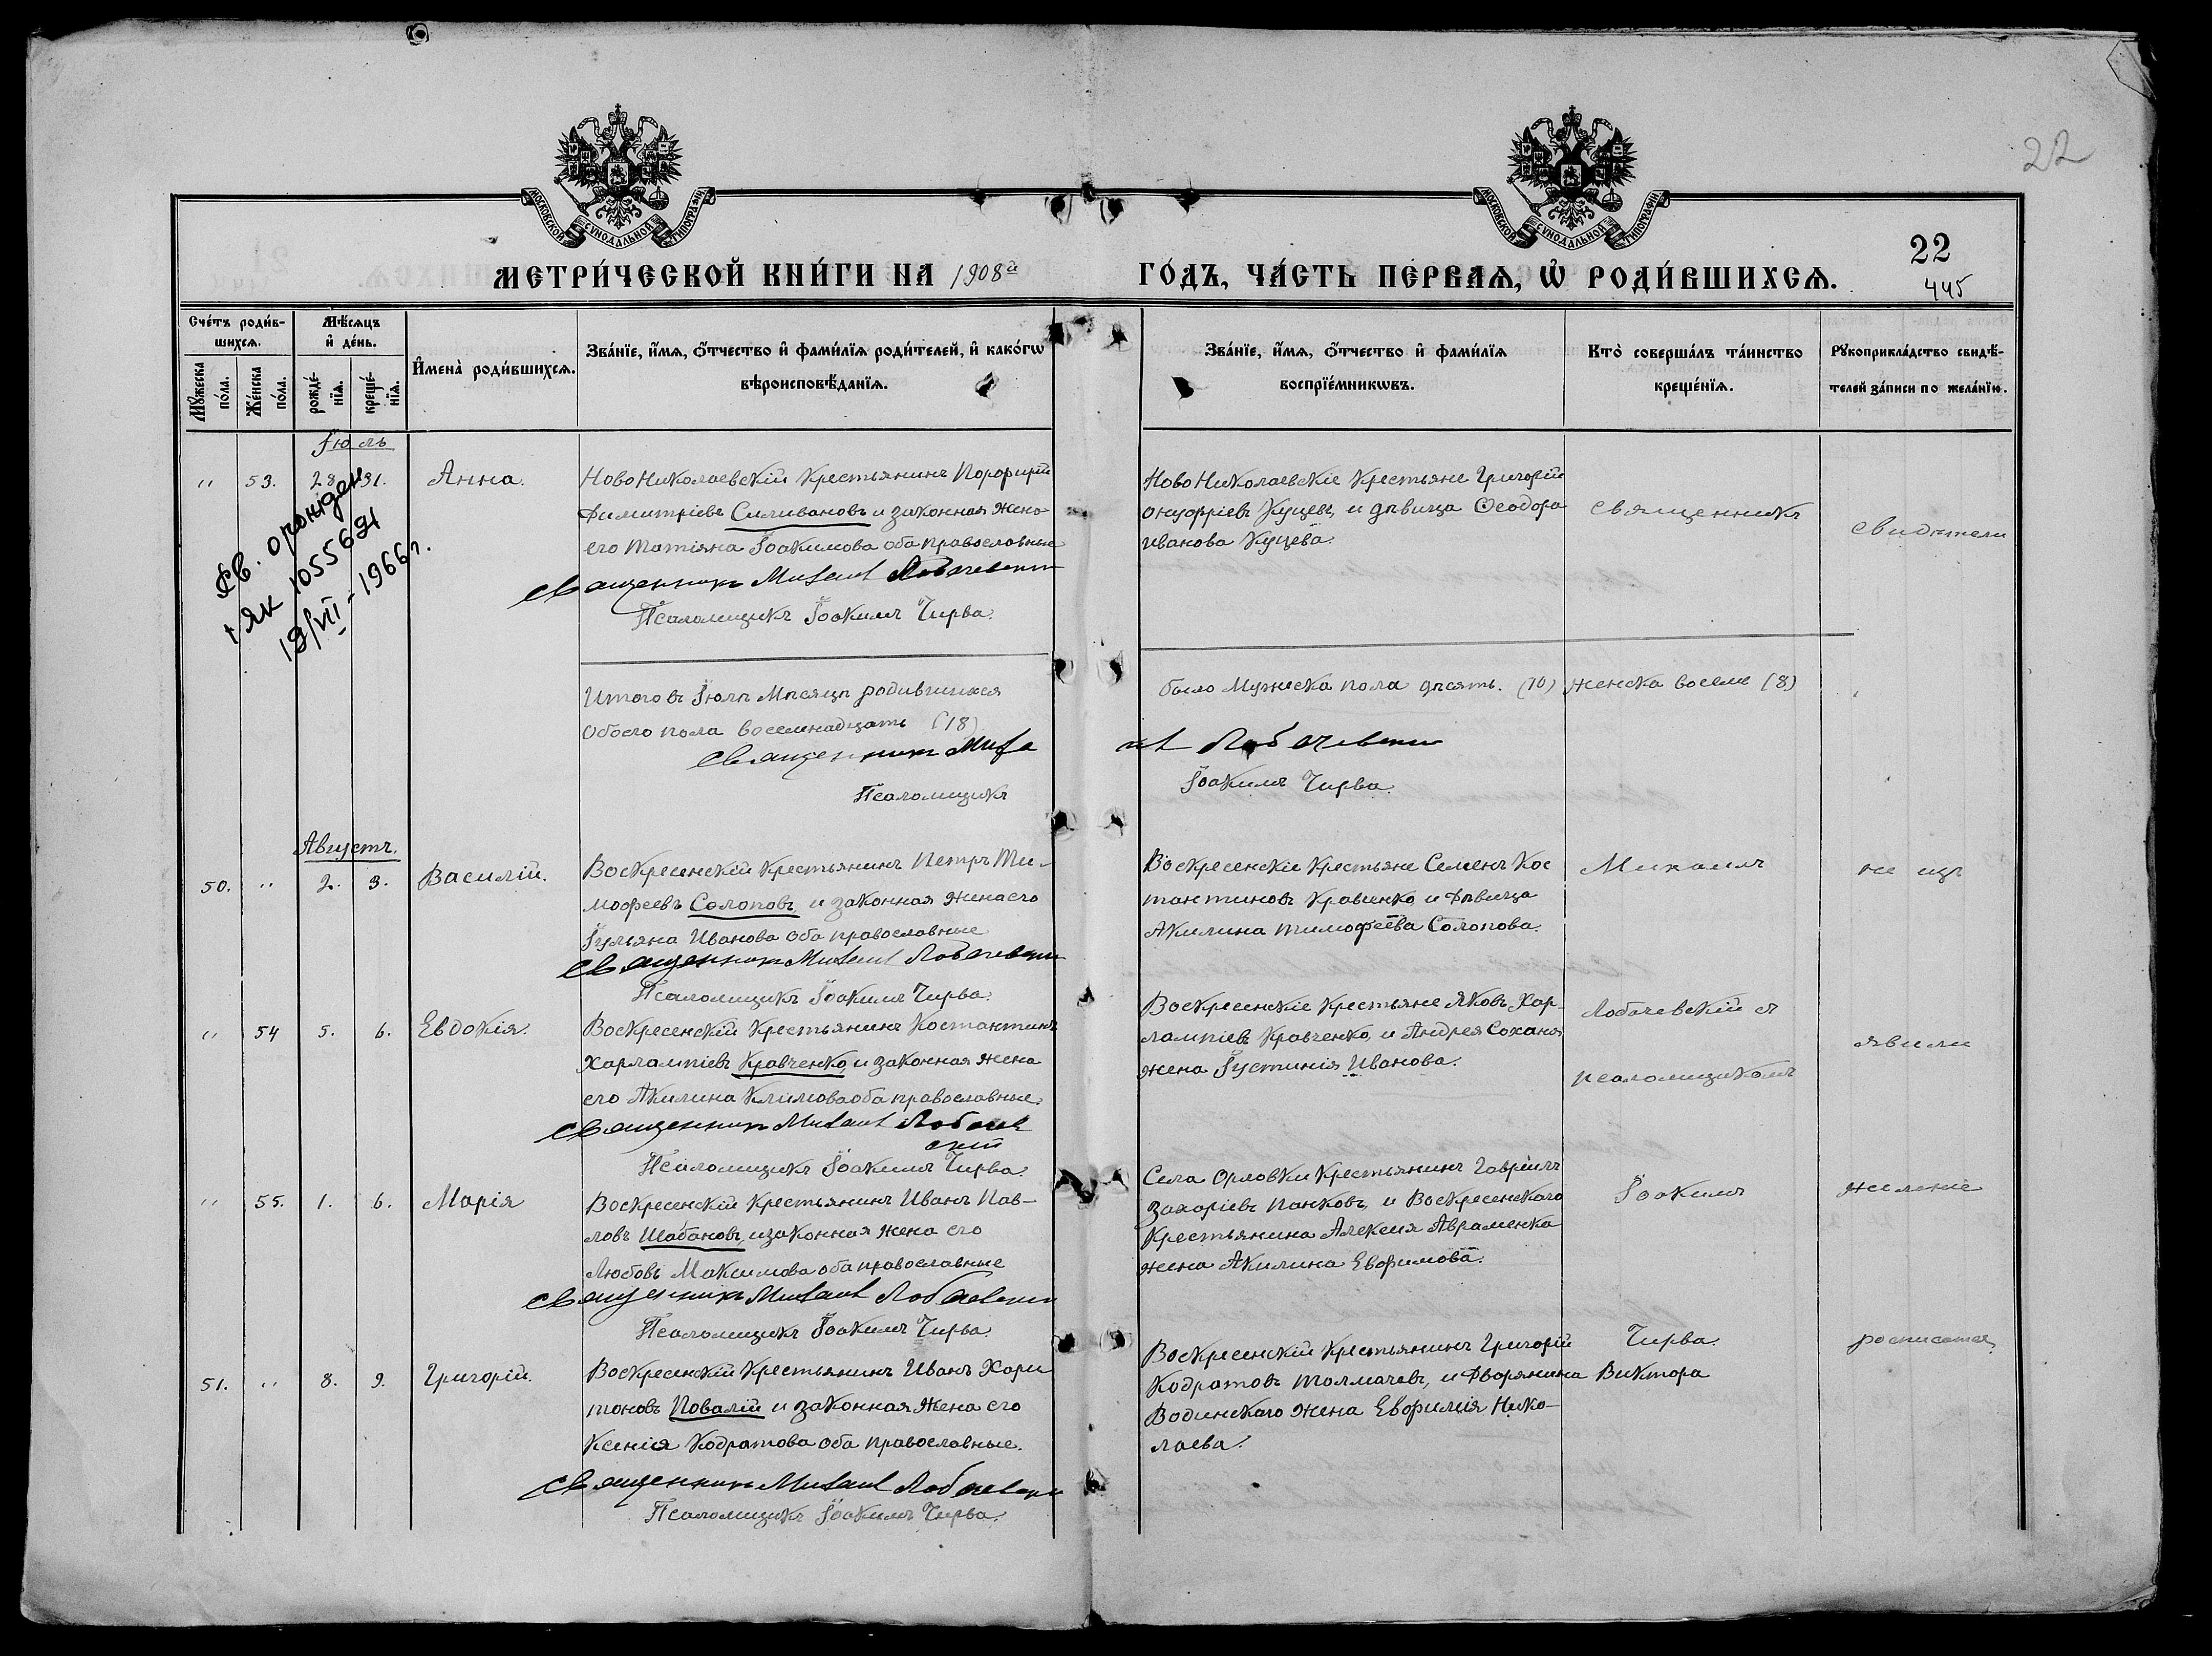 22
МОСКОВСКОЙ СѴНОДАЛЬНОЙ ТИПОГРАФІИ
МОСКОВСКОЙ СѴНОДАЛЬНОЙ ТИПОГРАФІИ
22
445
МЕТРИ́ЧЕСКОЙ КНИ́ГИ НА 1908й ГО́ДЪ, ЧА́СТЬ ПЕ́РВАѦ, Ѡ҆ РОДИ́ВШИХСѦ.
Сче́тъ роди́в-
шихсѧ.
Мꙋ́жеска по́ла.
Же́нска по́ла.
Мѣ́сѧцъ
и҆ де́нь.
рожде́-
нїѧ.
креще́-
нїѧ.
И҆мена̀ роди́вшихсѧ.
Зва́нїе, и҆́мѧ, ѻ҆́тчество и҆ фами́лїѧ роди́телей, и҆ како́гѡ
вѣроисповѣ́данїѧ.
Зва́нїе, и҆́мѧ, ѻ҆́тчество и҆ фами́лїѧ
воспрїе́мникѡвъ.
Кто̀ соверша́лъ та́инство
креще́нїѧ.
Рꙋкоприкла́дство свидѣ́-
телей за́писи по жела́нїю.
Іюль
" 53. 28 31. Анна.
Св. о рожден
1 ЯК 1055621
19/VII-1966 г.
НовоНиколаевскій Крестьянинъ Порфирій
Димитріевъ Силивановъ и законная жена
его Татіяна Іоакимова оба православные
Священникъ Михаил Лобачевский
Псаломщикъ Іоакимъ Чирва.
НовоНиколаевскіе Крестьяне Григорій
Онуфріевъ Куцевъ, и дѣвица Ѳеодора
Иванова Куцева.
Священникъ
Свидѣтели
Итого въ Іюлѣ Мѣсяцѣ родившихся
обоего пола восемнадцать (18)
было Мужеска пола десять. (10) женска восемь (8)
Священникъ Михаил Лобачевский
Псаломщикъ Іоакимъ Чирва.
Августъ.
50. " 2. 3. Василій.
Воскресенскій Крестьянинъ Петръ Ти-
мофеевъ Солоповъ, и законная жена его
Іульяна Иванова оба православные
Священникъ Михаил Лобачевский
Псаломщикъ Іоакимъ Чирва.
Воскресенскіе Крестьяне Семенъ Кос
тантиновъ Кравченко, и Дѣвица
Акилина Тимофеева Солопова.
Михаилъ
не изъ
" 54 5. 6. Евдокія.
Воскресенскій Крестьянинъ Костантинъ
Харлампіевъ Кравченко, и законная жена
его Акилина Климова оба православные.
Священникъ Михаил Лобачев
ский
Псаломщикъ Іоакимъ Чирва.
Воскресенскіе Крестьяне Яковъ Хар-
лампіевъ Кравченко, и Андрея Соханя
жена Іустинія Иванова.
Лобачевскій съ
псаломщикомъ
явили
" 55. 1. 6. Марія
Воскресенскій Крестьянинъ Иванъ Пав-
ловъ Шабановъ, и законная жена его
Любовь Максимова оба православные
Священникъ Михаил Лобачевский
Псаломщикъ Іоакимъ Чирва.
Села Орловки Крестьянинъ Гавріилъ
Захаріевъ Панковъ, и Воскресенскаго
Крестьянина Алексея Авраменка
жена Акилина Евфимова.
Іоакимъ
желаніе
51. " 8. 9. Григорій.
Воскресенскій Крестьянинъ Иванъ Хари
тоновъ Повалій и законная жена его
Ксенія Кодратова оба православные.
Священникъ Михаил Лобачевский
Псаломщикъ Іоакимъ Чирва.
Воскресенскій Крестьянинъ Григорій
Кодратовъ Толмачевъ, и Дворянина Виктора
Водинскаго жена Евфимія Нико-
лаева.
Чирва.
росписатся